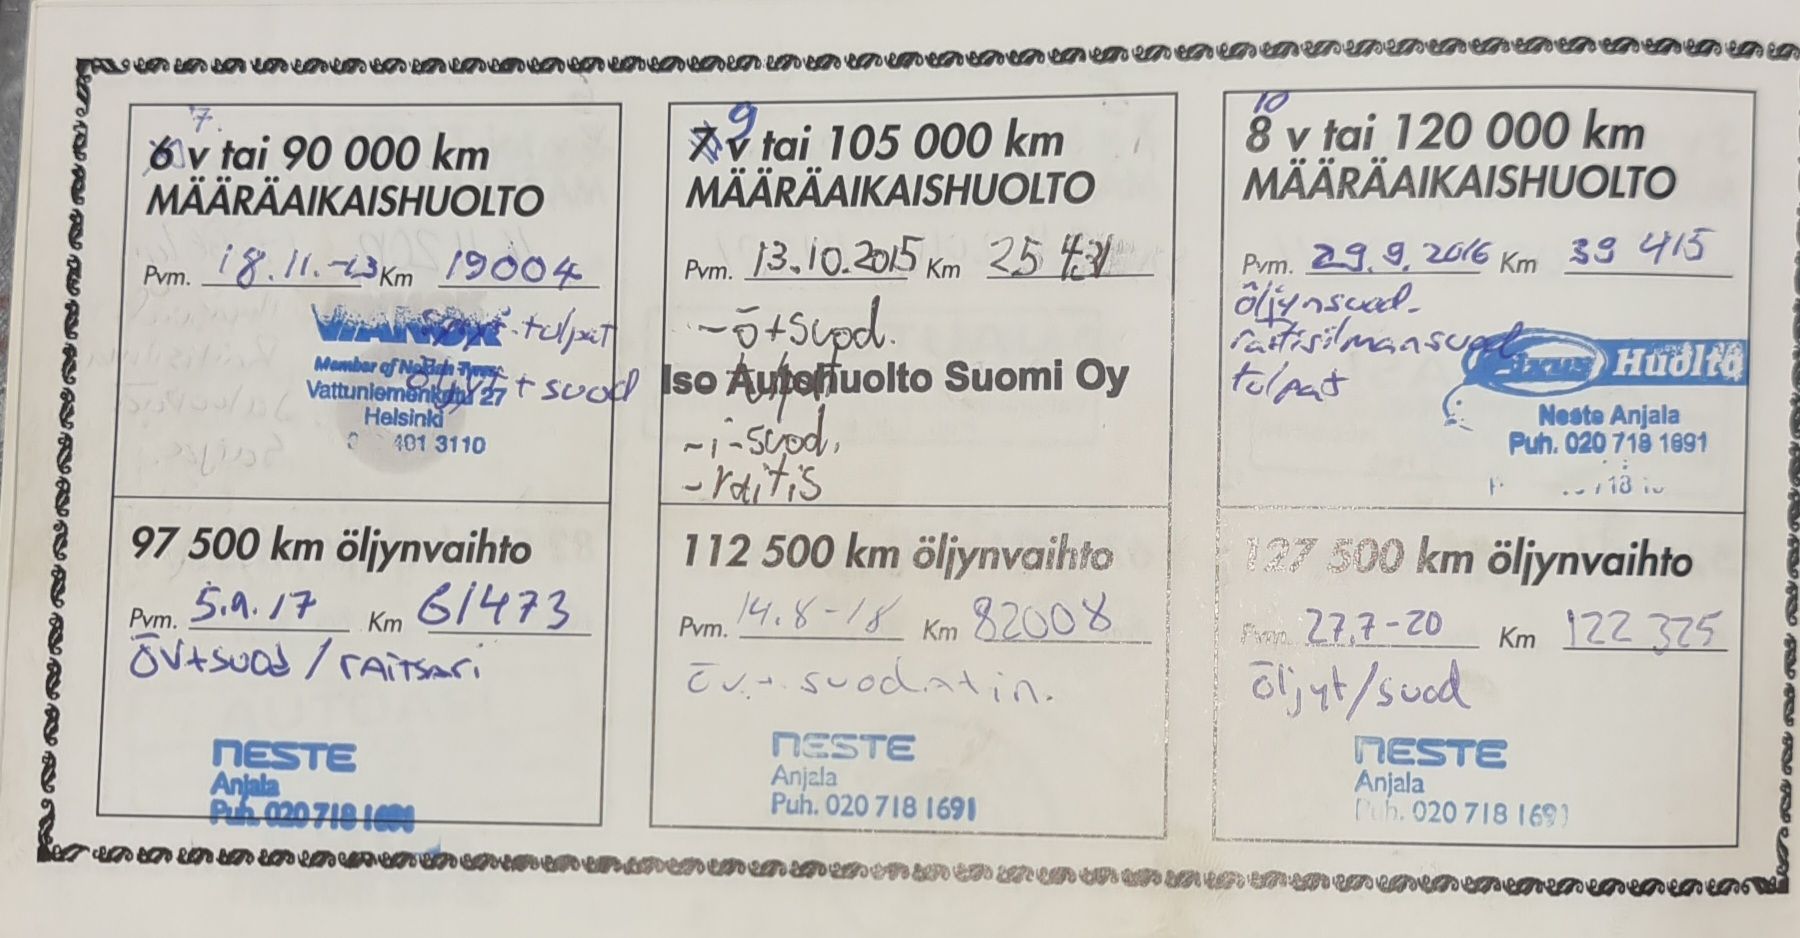 7.
6 v tai 90 000 km
MÄÄRÄAIKAISHUOLTO
Pvm. 18.11.-13 Km 19004
VIANOR
-tulpat
Member of Nokian Tyres
öljyt + suod
Vattuniemenkatu 27
Helsinki
401 3110
97 500 km öljynvaihto
Pvm. 5.9.17 Km 61473
ÖV+suod / raitsari
NESTE
Anjala
Puh. 020 718 1691
9
7 v tai 105 000 km
MÄÄRÄAIKAISHUOLTO
Pvm. 13.10.2015 Km 25 431
-ö+suod.
Iso Autohuolto Suomi Oy
-tulpat
-i-suod.
-raitis
112 500 km öljynvaihto
Pvm. 14.8-18 Km 82008
öv.+ suodatin.
NESTE
Anjala
Puh. 020 718 1691
10
8 v tai 120 000 km
MÄÄRÄAIKAISHUOLTO
Pvm. 29.9.2016 Km 39 415
öljynsuod.
raitisilmansuod
tulpat
Huolto
Neste Anjala
Puh. 020 718 1691
127 500 km öljynvaihto
Pvm. 27.7-20 Km 122 325
öljyt/suod
NESTE
Anjala
Puh. 020 718 1691